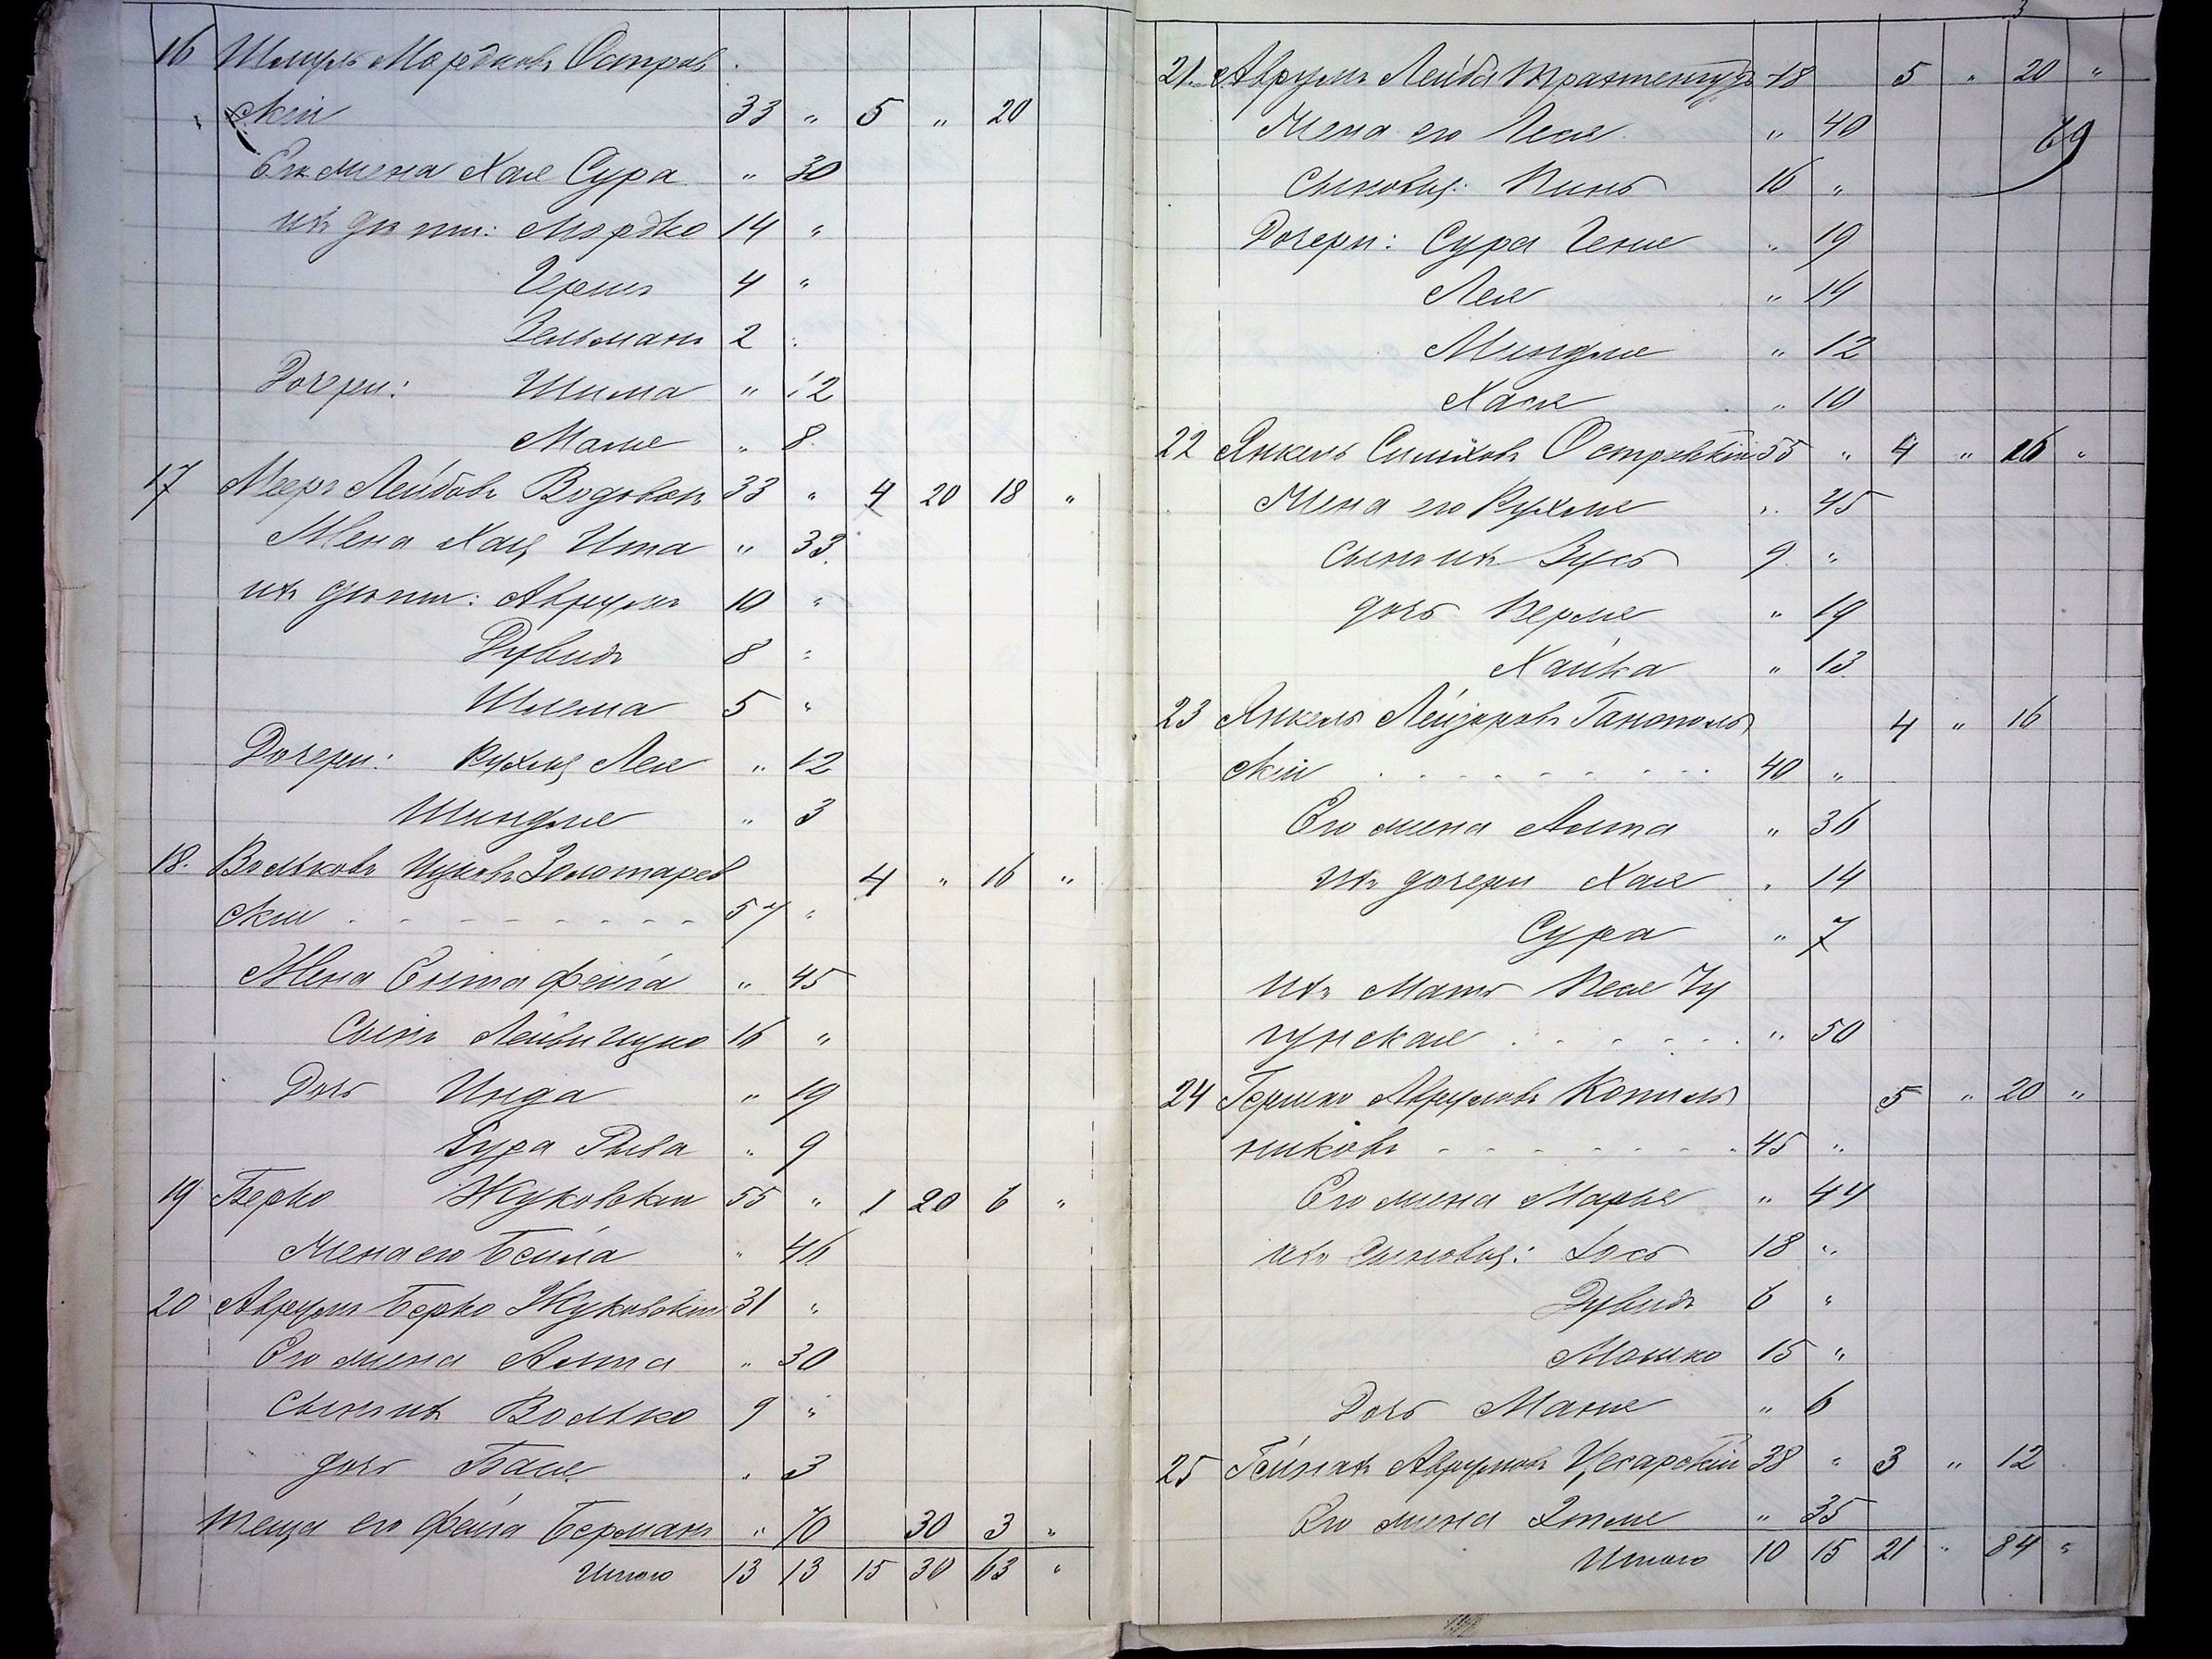 16 Шмуль Мордковъ Остров
скій 33 " 5 " 20
Его жена Хая Сура " 30
ихъ дѣти: Мордко 14 "
Гершъ 4 "
Зельманъ 2 "
Дочери: Шима " 12
Маля " 8
17 Мееръ Лейбовъ Водовозъ 33 " 4 20 18 "
Жена Хая Ита " 33
ихъ дѣти: Аврумъ 10 "
Дувидъ 8 "
Шлема 5 "
Дочери: Рухля Лея " 12
Шиндля " 3
18. Вольковъ Ицковъ Золотарев 4 " 16 "
скій 57 "
Жена Ента Фейга " 45
Сынъ Лейви Ицко 16 "
Дочь Инда " 19
Сура Рыва " 9
19 Берко Жуковскій 55 " 1 20 6 "
Жена его Бейла " 46
20 Аврумъ Берко Жуковскій 31 "
Его жена Алта " 30
Сынъ ихъ Волько 9 "
дочь Бася " 3
теща его Фейга Берманъ " 70 30 3 "
Итого 13 13 15 30 63 "
3
21. Аврумъ Лейба 48 5 " 20 "
Жена его Песя " 40
69
Сыновья: Пинь 16 "
Дочери: Сура Геня " 19
Лея " 14
Миндля " 12
Хася " 10
22 Янкель Симховъ Островскій 55 " 4 " 16 "
Жена его Рухля " 45
Сынъ ихъ Зусь 9 "
дочь Перля " 19
Хайка " 13
23 Янкель Лейзеровъ Ганополь 4 " 16
скій 40 "
Его жена Алта " 36
ихъ дочери Хая " 14
Сура " 7
Ихъ Мать Песя Чу
гунская " 50
24 Гершко Аврумовъ Копиль 5 " 20 "
никовъ 45 "
Его жена Марья " 44
ихъ Сыновья: Іось 18 "
Дувидъ 6 "
Мошко 15 "
Дочь Маня " 6
25 Гейнахъ Аврумовъ Цехарскій 38 " 3 " 12
Его жена Этля " 35
Итого 10 15 21 " 84 "